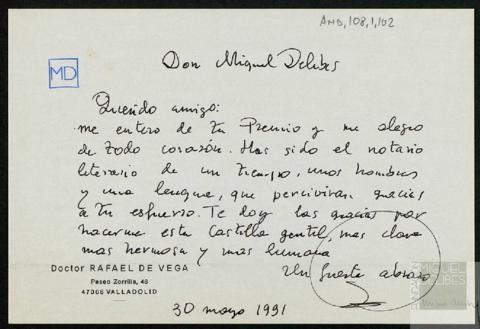 AMD,108,1,102
MD
Don Miguel Delibes
Querido amigo:
me entero de tu Premio y me alegro
de todo corazón. Has sido el notario
literario de un tiempo, unos hombres
y una lengua, que perciviran gracias
a tu esfuerzo. Te doy las gracias por
hacerme esta Castilla gentil, mas clara
mas hermosa y mas humana
Un fuerte abrazo
Doctor RAFAEL DE VEGA
Paseo Zorrilla, 48
47006 VALLADOLID
30 mayo 1991
FUNDACIÓN
MIGUEL
DELIBES